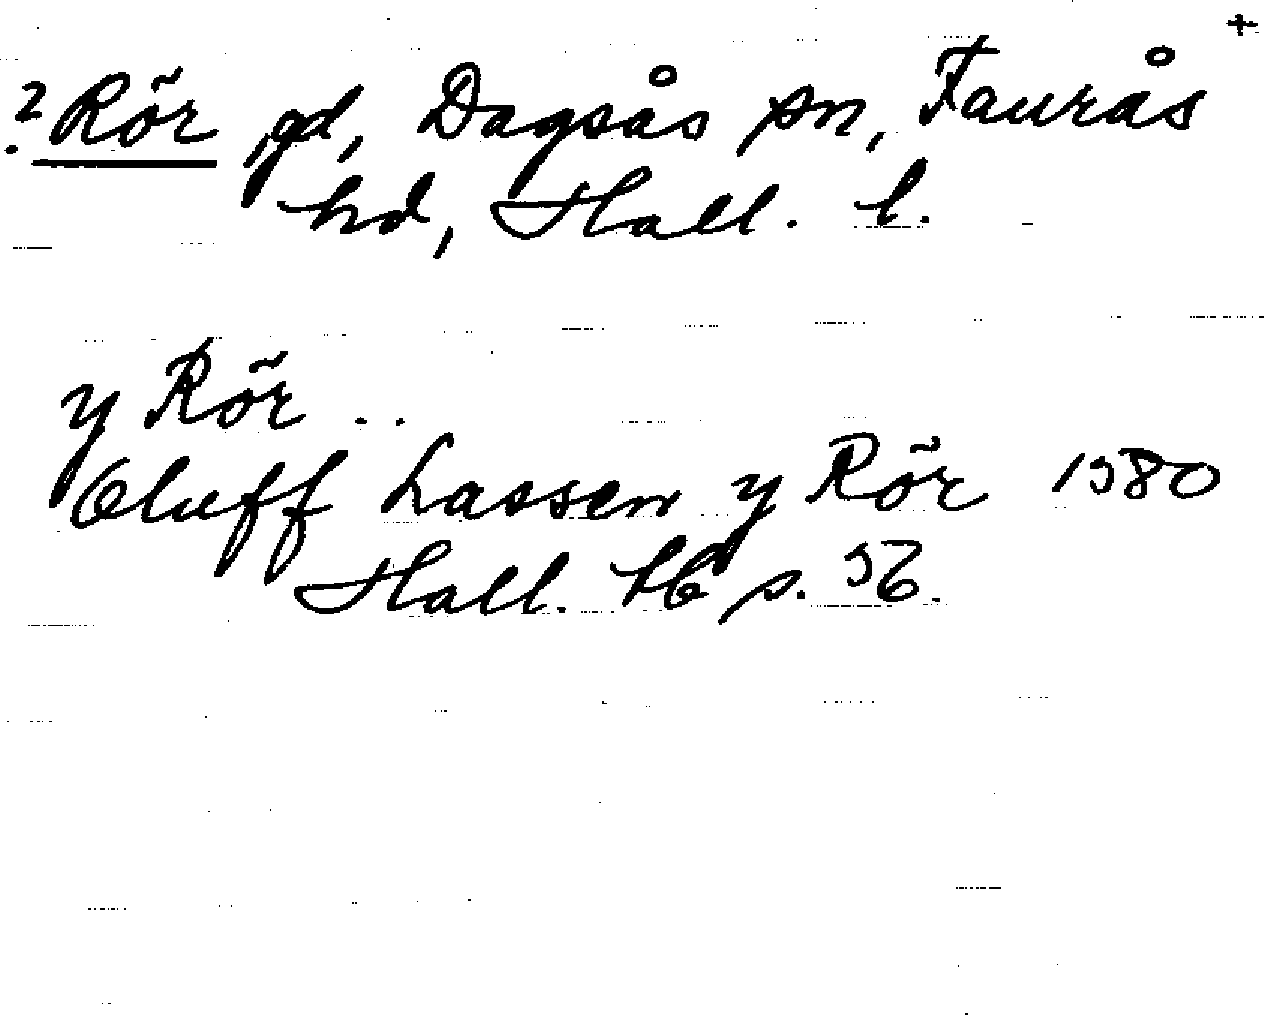 +
? Rör, gd, Dagsås sn, Faurås
hd, Hall. l.
y Rör ..
Oluff Lassen y Rör 1580
Hall. hb s. 56.